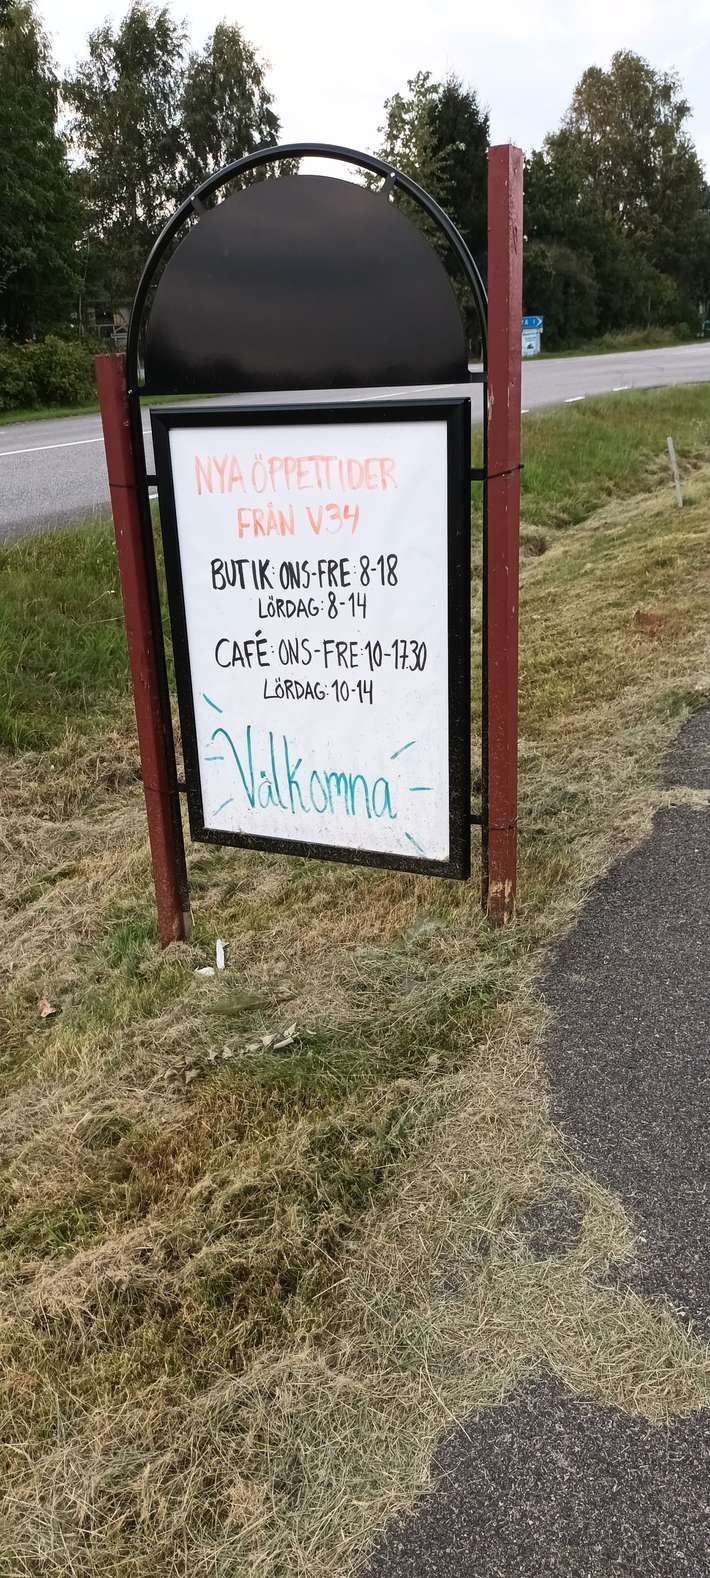 NYA ÖPPETTIDER
FRÅN V34
BUTIK: ONS-FRE: 8-18
LÖRDAG: 8-14
CAFÉ: ONS-FRE: 10-17.30
LÖRDAG: 10-14
Välkomna